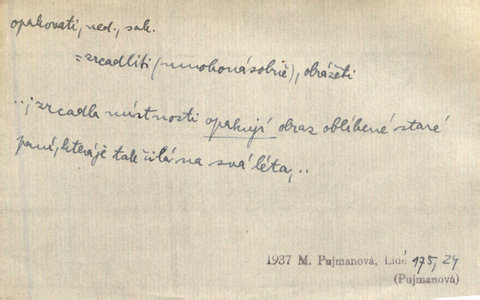 opakovati, ned., zák.
= zrcadliti (mnohonásobně), obrážeti
..; zrcadla místnosti opakují obraz oblíbené staré
paní, která je tak čilá na svá léta, ..
1937 M. Pujmanová, Lidé 175, 24
(Pujmanová)